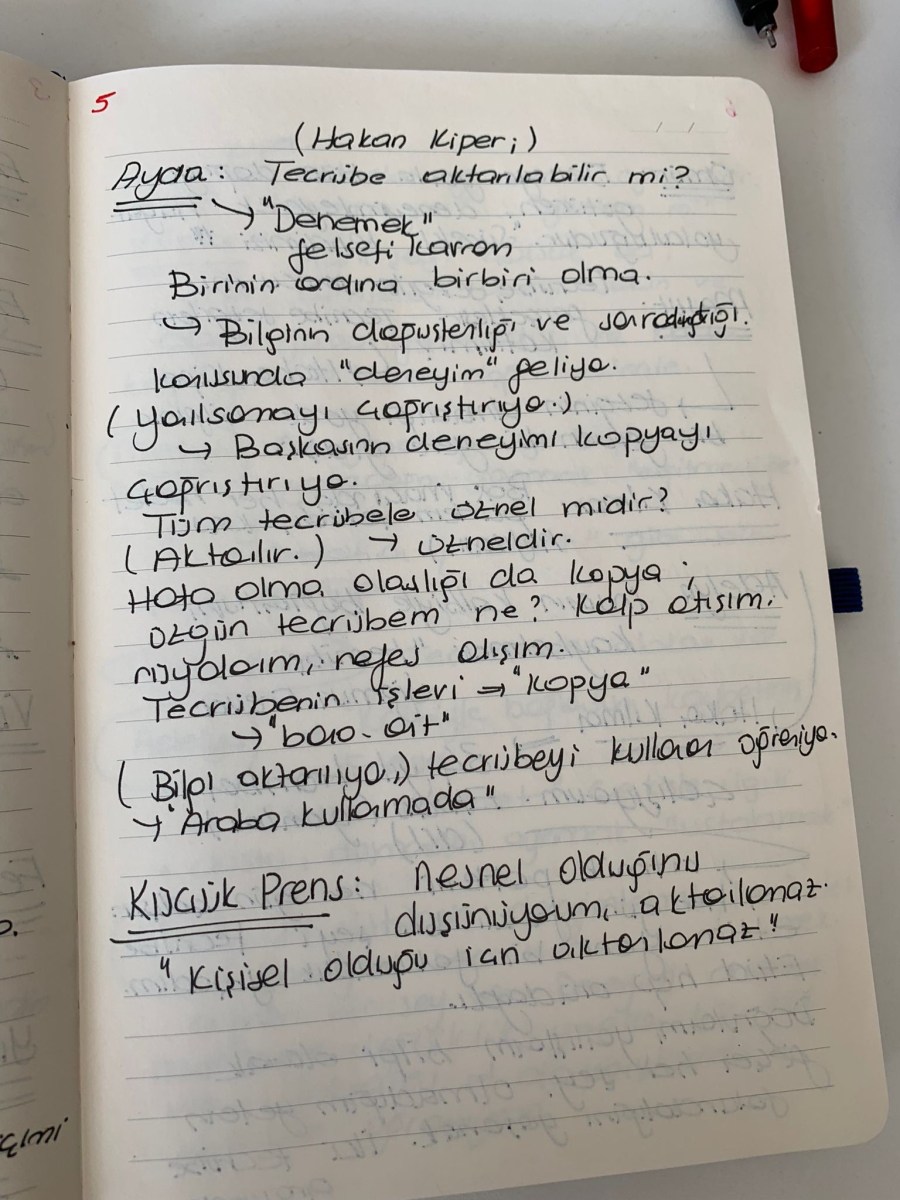 5
(Hakan Kiper;)
Ayda: Tecrübe aktarılabilir mi?
→ "Denemek"
felsefi kavram
Birinin ardına birbiri olma.
→ Bilginin ve
konusunda "deneyim" geliyo.
( çağrıştırıyo.)
→ Başkasının deneyimi kopyayı
çağrıştırıyo.
Tüm tecrübele öznel midir?
(Aktarılır.) → özneldir.
Hata olma olasılığı da kopya;
özgün tecrübem ne? Kalp atışım,
rüyalarım, nefes alışım.
Tecrübenin işlevi → "kopya"
→ "bana ait"
(Bilgi aktarılıyo,) tecrübeyi kullanan öğreniyo.
→ "Araba kullanmada"
Küçük Prens: nesnel olduğunu
düşünüyorum, aktarılamaz.
"Kişisel olduğu için aktarılamaz"